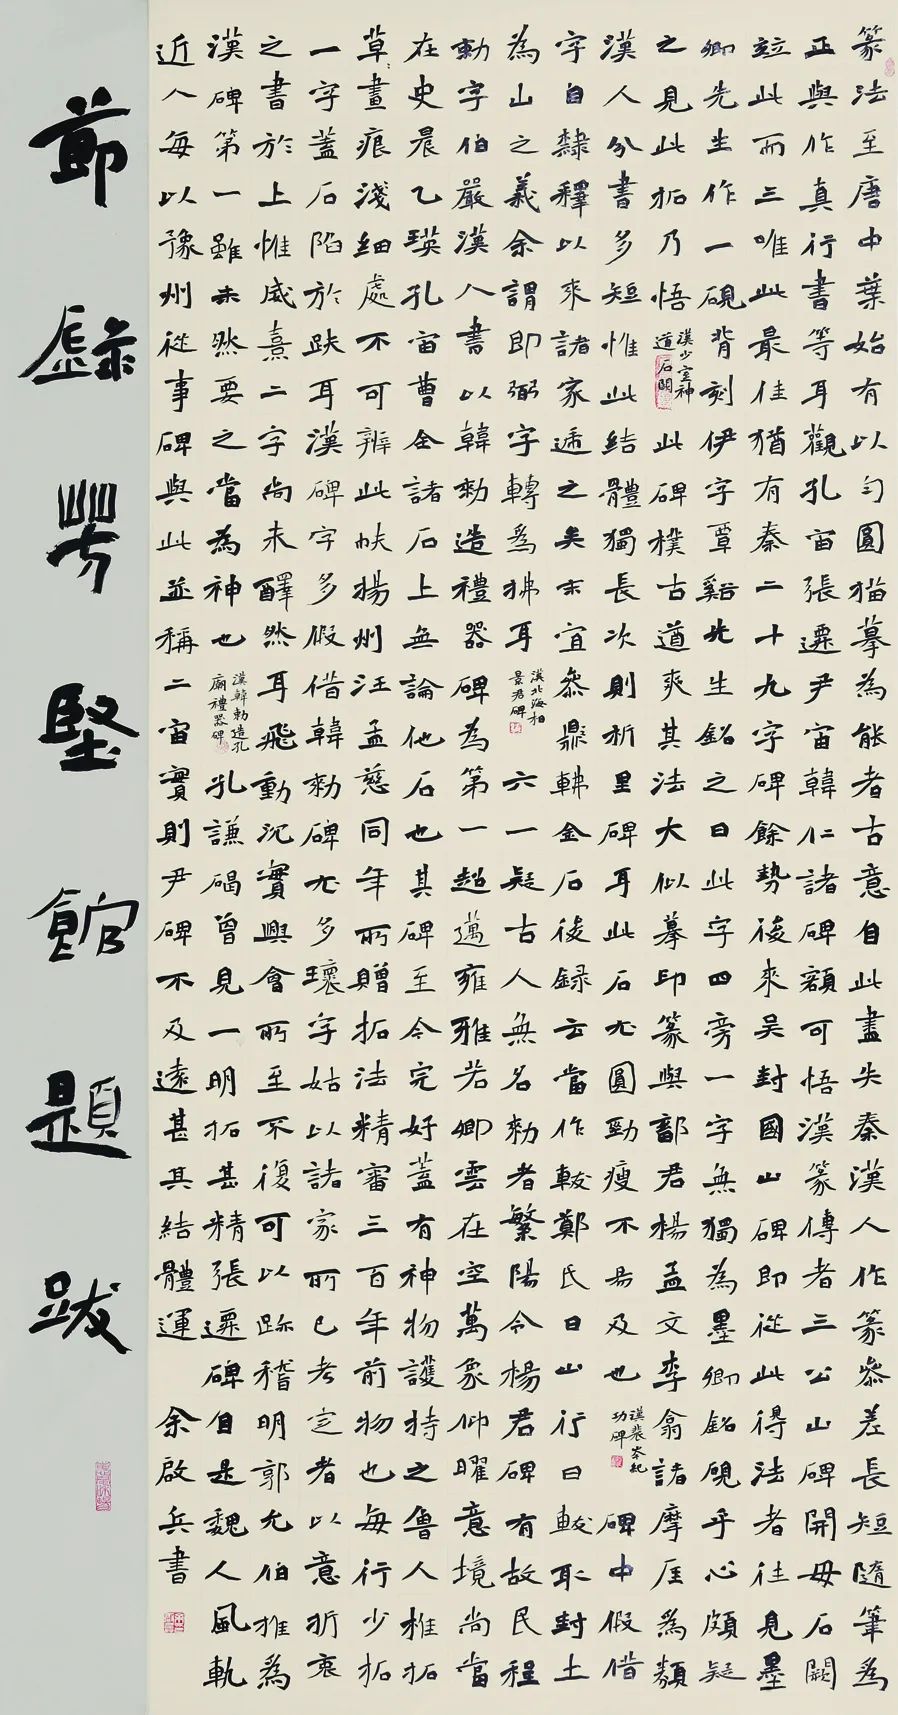 篆法至唐中葉始有以勻圓描摹為能者古意自此盡失秦漢人作篆參差長短隨筆為
正與作真行書等耳觀孔宙張遷尹宙韓仁諸碑額可悟漢篆傳者三公山碑開母石闕
竝此而三唯此最佳猶有秦二十九字碑餘勢後來吳封國山碑即從此得法者往見墨
卿先生作一硯背刻伊字覃谿先生銘之曰此字四旁一字無獨為墨卿銘硯乎心頗疑
之見此拓乃悟漢少室神道石闕此碑樸古遒爽其法大似摹印篆與鄐君楊孟文李翕諸摩厓為類
漢人分書多短惟此結體獨長次則析里碑耳此石尤圓勁瘦不易及也漢裴岑紀功碑碑中假借
字自隸釋以來諸家遞之矣末宜參鼎韍金石後録云當作軷鄭氏曰山行曰軷取封土
為山之義余謂即弼字轉為拂耳漢北海相景君碑六一疑古人無名勑者繁陽令楊君碑有故民程
勑字伯嚴漢人書以韓勑造禮器碑為第一超邁雍雅若卿雲在空萬象仰曜意境尚當
在史晨乙瑛孔宙曹全諸石上無論他石也其碑至今完好蓋有神物護持之魯人椎拓
草〻畫痕淺細處不可辨此帙揚州汪孟慈同年所贈拓法精審三百年前物也每行少拓
一字蓋石陷於趺耳漢碑字多假借韓勑碑尤多瓌字姑以諸家所已考定者以意折衷
之書於上惟咸熹二字尚未醳然耳飛動沉實興會所至不復可以跡稽明郭允伯推為
漢碑第一雖未然要之當為神也漢韓勑造孔廟禮器碑孔謙碣曾見一明拓甚精張遷碑自是魏人風軌
近人每以豫州從事碑與此並稱二宙實則尹碑不及遠甚其結體運 余啟兵書
節録芳堅館題跋